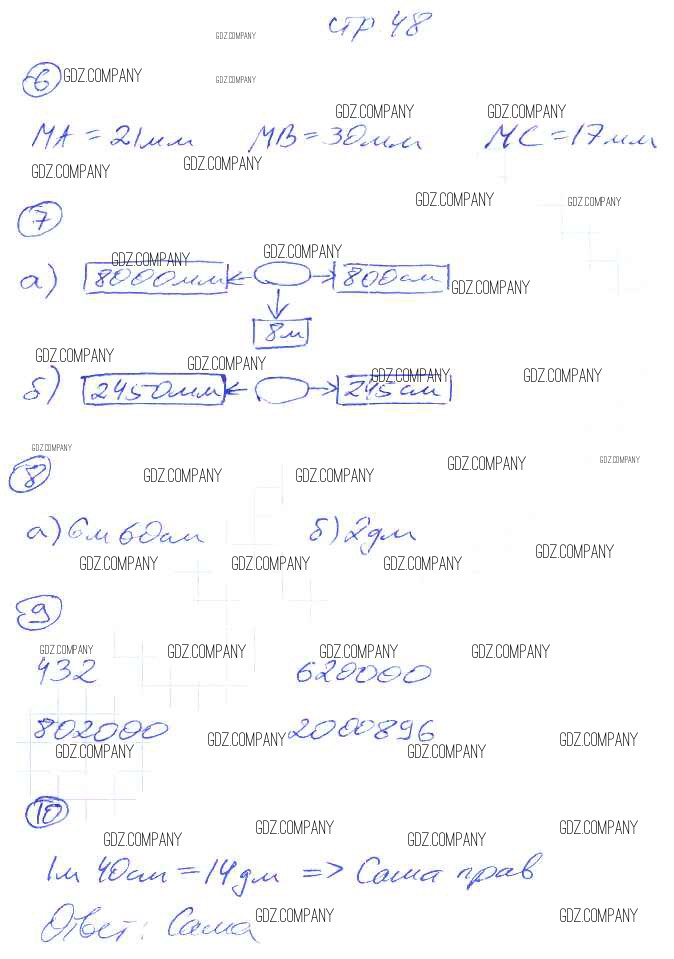 стр 48
GDZ.COMPANY
6 GDZ.COMPANY GDZ.COMPANY
GDZ.COMPANY GDZ.COMPANY
МА = 21мм МВ = 30мм МС = 17мм
GDZ.COMPANY GDZ.COMPANY
GDZ.COMPANY GDZ.COMPANY
7
GDZ.COMPANY GDZ.COMPANY
а) 8000мм 800см
GDZ.COMPANY
8м
GDZ.COMPANY GDZ.COMPANY GDZ.COMPANY GDZ.COMPANY
б) 2450мм 245см
GDZ.COMPANY GDZ.COMPANY GDZ.COMPANY
8 GDZ.COMPANY GDZ.COMPANY
а) 6м 60см б) 2дм
GDZ.COMPANY GDZ.COMPANY GDZ.COMPANY GDZ.COMPANY
9
GDZ.COMPANY GDZ.COMPANY GDZ.COMPANY GDZ.COMPANY
432 620000
802000 2000896
GDZ.COMPANY GDZ.COMPANY GDZ.COMPANY GDZ.COMPANY
10
GDZ.COMPANY GDZ.COMPANY GDZ.COMPANY GDZ.COMPANY
1м 40см = 14дм => Саша прав
Ответ: Саша
GDZ.COMPANY GDZ.COMPANY